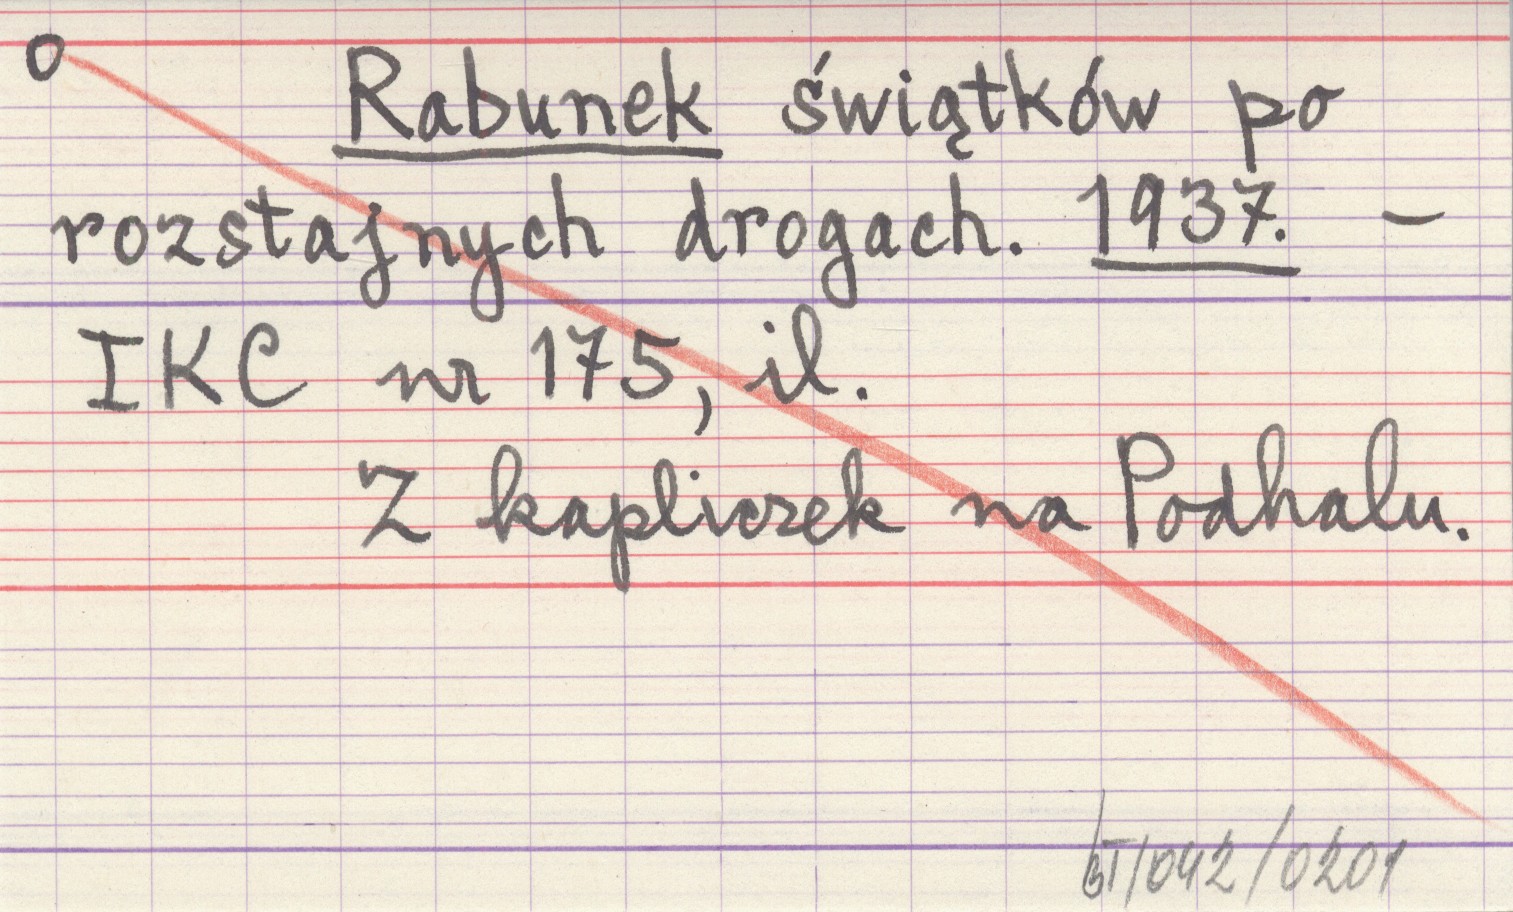 O Rabunek świątków po
rozstajnych drogach. 1937. –
IKC nr 175, il.
Z kapliczek na Podhalu.
BT/042/0201